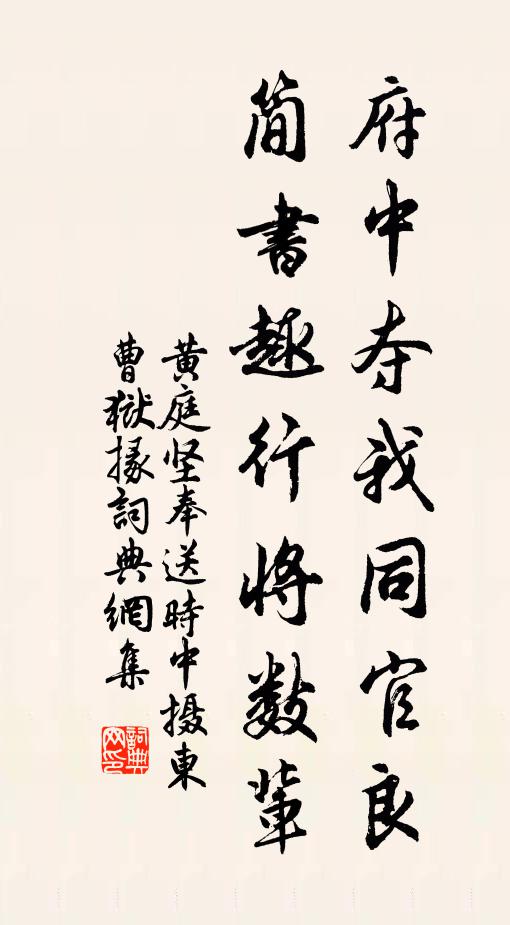 府中夺我同官良
简書趣行将数輩
黄庭坚奉送時中摄東
曹獄掾詞典網集
詞典网印